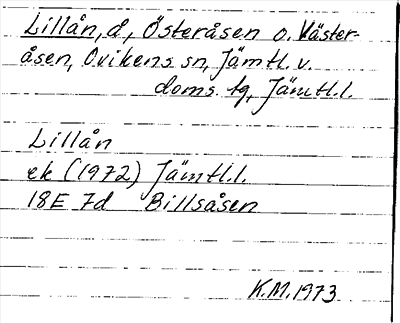 Lillån, å, Österåsen o. Väster-
åsen, Ovikens sn, Jämtl. v.
doms. tg, Jämtl. l.
Lillån
ek (1972) Jämtl. l.
18E 7d Billsåsen
K.M. 1973